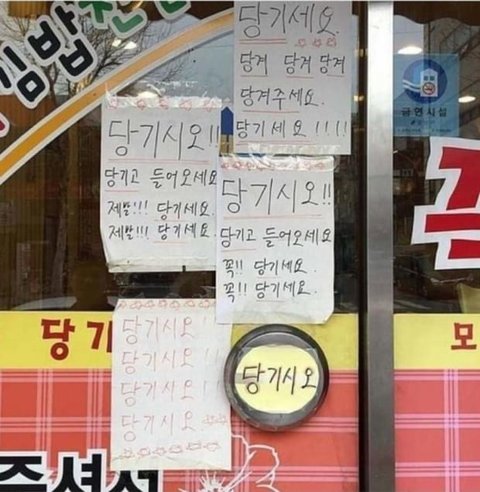 김밥천
당기세요.
당겨 당겨 당겨
당겨주세요.
당기세요!!!!
금연시설
당기시오!!
당기고 들어오세요
제발!!! 당기세요.
제발!!! 당기세요.
당기시오!!
당기고 들어오세요
꼭!! 당기세요.
꼭!! 당기세요.
당기시오!
당기시오!!
당기시오!!
당기시오
당기시오
당기
모
주셔서